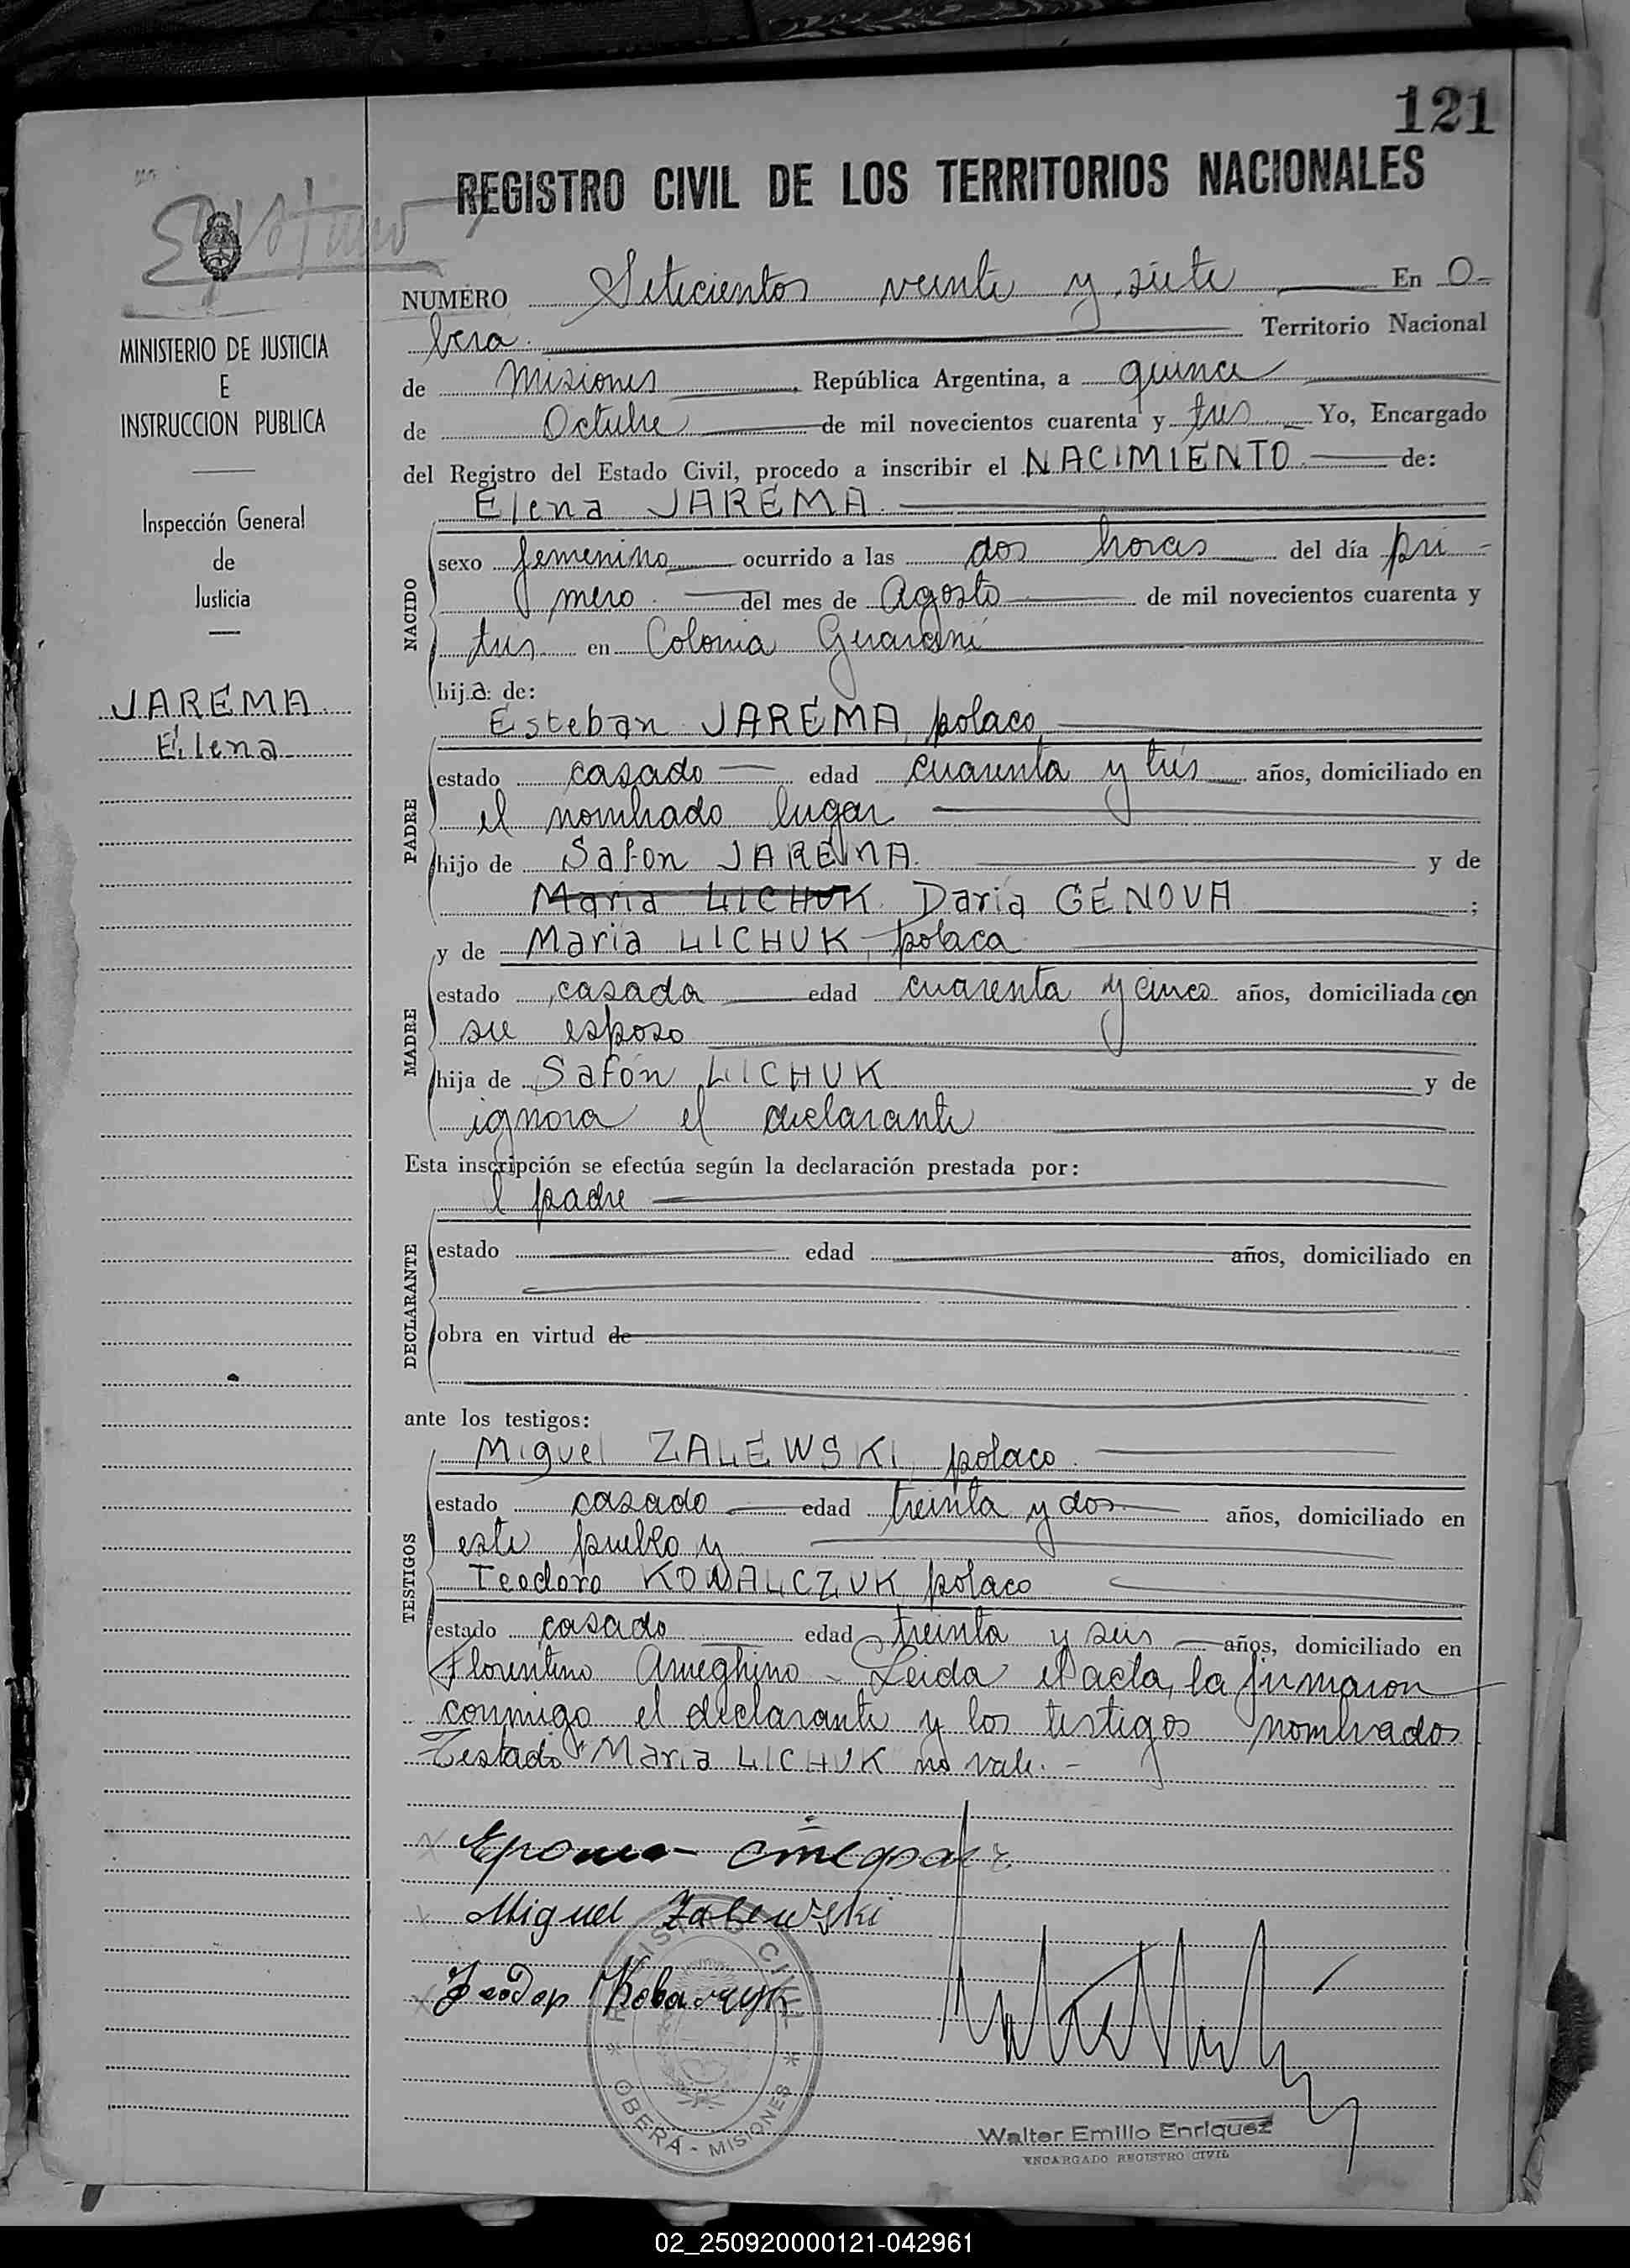 121
REGISTRO CIVIL DE LOS TERRITORIOS NACIONALES
MINISTERIO DE JUSTICIA
E
INSTRUCCION PUBLICA
Inspección General
de
Justicia
JAREMA
Elena
NUMERO Setecientos veinte y siete En O-
bera. Territorio Nacional
de Misiones, República Argentina, a quince
de Octubre de mil novecientos cuarenta y tres Yo, Encargado
del Registro del Estado Civil, procedo a inscribir el NACIMIENTO de:
Elena JAREMA
NACIDO
sexo femenino ocurrido a las dos horas del día pri-
mero del mes de Agosto de mil novecientos cuarenta y
tres en Colonia Guaraní
hija de:
Esteban JAREMA, polaco
PADRE
estado casado edad cuarenta y tres años, domiciliado en
el nombrado lugar
hijo de Safon JAREMA y de
Maria LICHUK Daria GENOVA ;
y de Maria LICHUK, polaca
MADRE
estado casada edad cuarenta y cinco años, domiciliada con
su esposo
hija de Safón LICHUK y de
ignora el declarante
Esta inscripción se efectúa según la declaración prestada por:
l padre
DECLARANTE
estado edad años, domiciliado en
obra en virtud de
ante los testigos:
Miguel ZALEWSKI, polaco
TESTIGOS
estado casado edad treinta y dos años, domiciliado en
este pueblo y
Teodoro KOWALCZUK polaco
estado casado edad treinta y seis años, domiciliado en
Florentino Ameghino - Leida el acta, la firmaron
conmigo el declarante y los testigos nombrados
Testado "Maria LICHUK no vale. -
Miguel Zalewski
REGISTRO CIVIL
* OBERÁ - MISIONES *
Walter Emilio Enriquez
ENCARGADO REGISTRO CIVIL
02_250920000121-042961